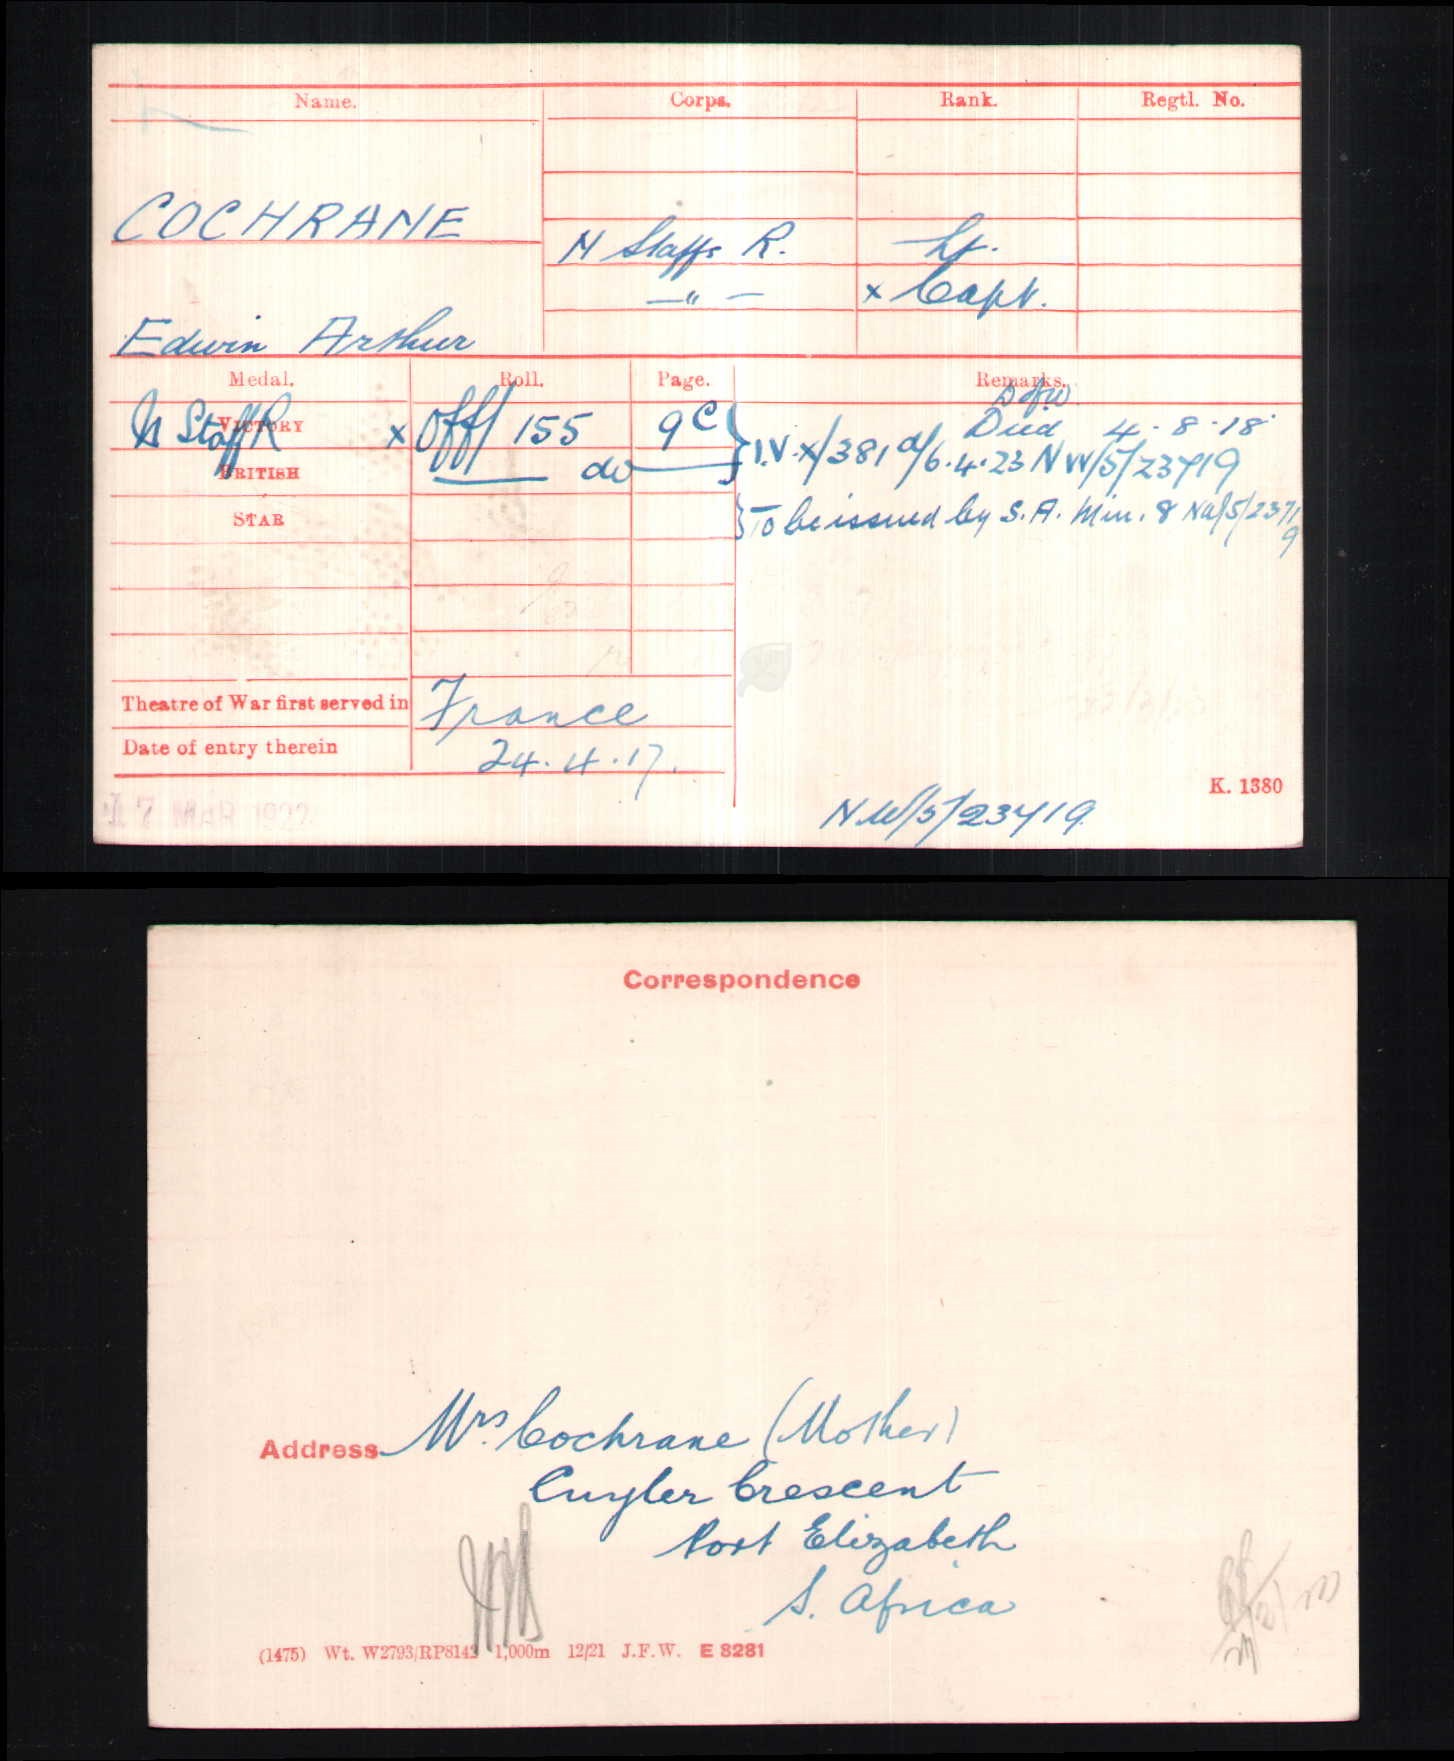 Name. Corps. Rank. Regtl. No.
COCHRANE
N Staffs R. Lt.
—"— x Capt.
Edwin Arthur
Medal. Roll. Page. Remarks.
D of W
VICTORY N Staff R x Off/155 9C Died 4.8.18.
BRITISH do I.V.x/381 d/6.4.23 NW/5/23719
STAR To be issued by S.A. Min. 8 NW/5/23719
Theatre of War first served in France
Date of entry therein 24.4.17.
K. 1380
17 MAR 1922
NW/5/23719
Correspondence
Address Mrs. Cochrane (Mother)
Cuyler Crescent
Port Elizabeth
S. Africa
(1475) Wt. W2793/RP8142 1,000m 12/21 J.F.W. E 8281